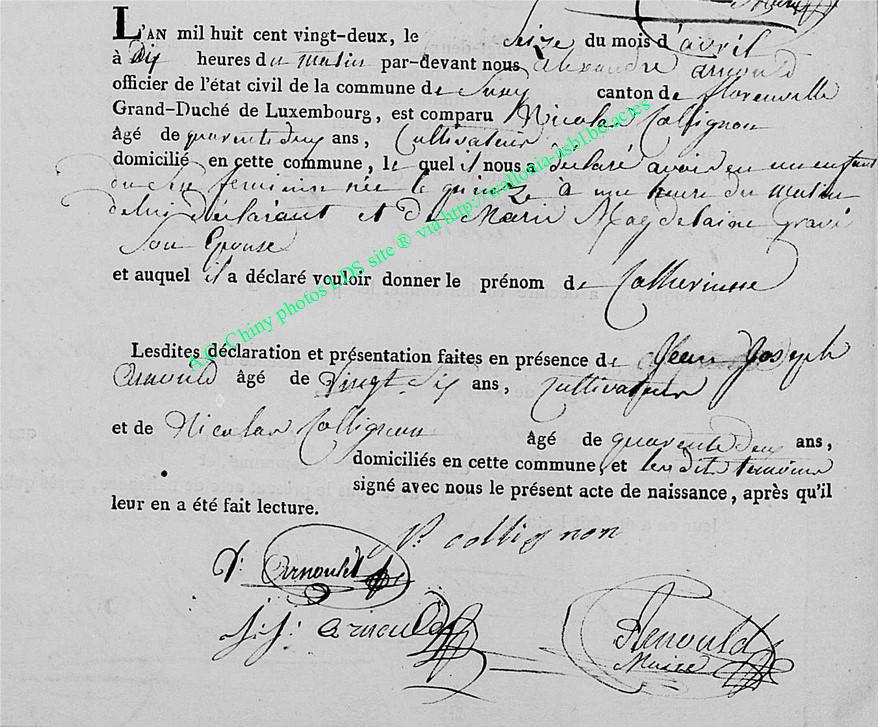 L'AN mil huit cent vingt-deux, le seize du mois d'avril
à dix heures du matin par-devant nous alexandre arnould
officier de l'état civil de la commune de Suxy canton de florenville
Grand-Duché de Luxembourg, est comparu Nicolas Collignon
âgé de quarente deux ans, Cultivateur
domicilié en cette commune, le quel il nous a déclaré avoir eu un enfant
du sex feminin née le quinze à une heure du matin
de lui déclarant et de Marie Magdelaine gravi
Son Epouse
et auquel il a déclaré vouloir donner le prénom de Catherinne
Lesdites déclaration et présentation faites en présence de Jean Joseph
Arnould âgé de vingt six ans, Cultivateur
et de Nicolas Collignon âgé de quarente deux ans,
domiciliés en cette commune, et lesdits temoins
signé avec nous le présent acte de naissance, après qu'il
leur en a été fait lecture.
collignon
Arnould
j: j: arnould
Arnould
Maire
A.C. Chiny photos LDS site ® via http://wallonia-asbl.be/actes